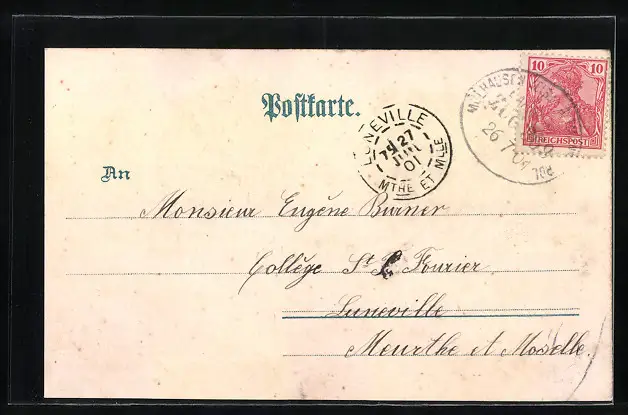 10 10
REICHSPOST
MÜLHAUSEN
26 7 01
708
Postkarte.
LUNEVILLE
7E 27
JUIL
01
MTHE ET MLLE
An
Monsieur Eugène Burner
Collège St P. Fourier
Luneville
Meurthe et Moselle.